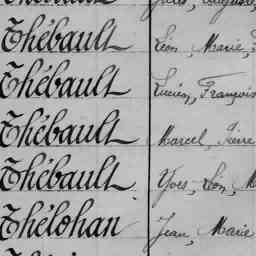 Thébault Léon, Marie,
Thébault Lucien, François
Thébault Marcel, Pierre
Thébault Yves, Léon, M
Thélohan Jean, Marie